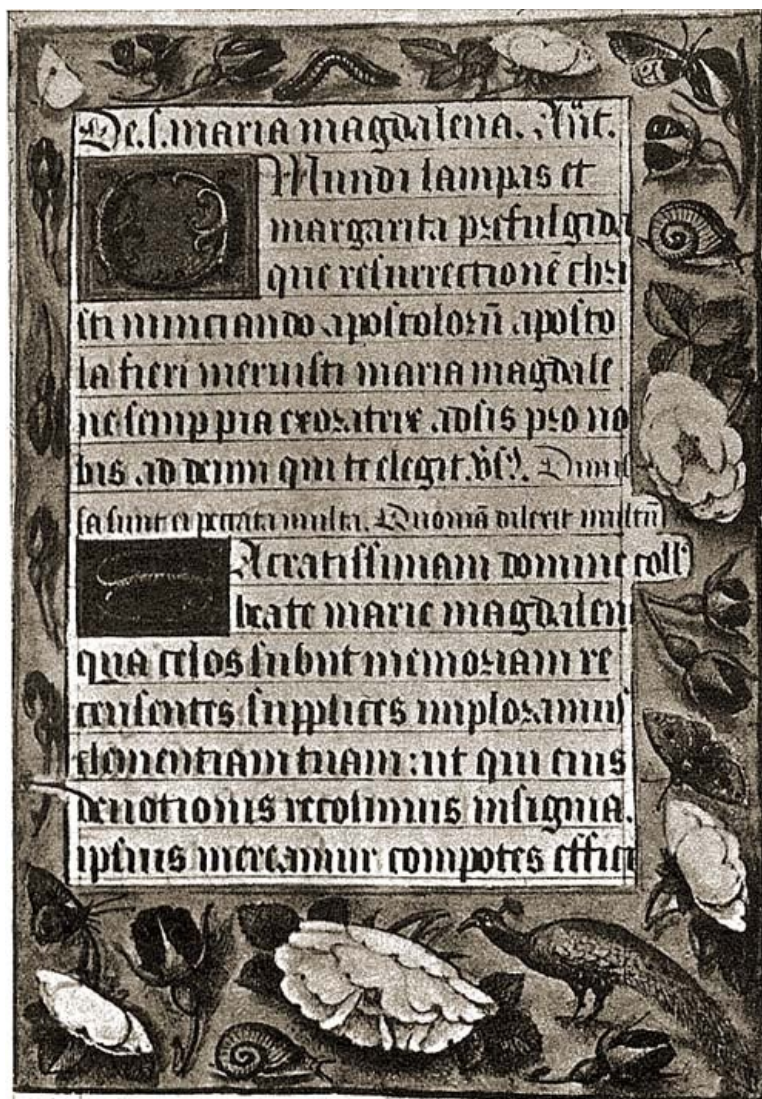 De.s.maria magdalena. Añt.
O Mundi lampas et
margarita prefulgida
que resurrectionē chri
sti nunciando apostoloꝝ aposto
la fieri meruisti maria magdale
ne semp pia exoratrix adsis pro no
bis ad deum qui te elegit. Dimis
sa sunt ei peccata multa. Quoniā dilexit multū
Sacratissimam domine coll'
beate marie magdalen
qua celos subiit memoriam re
censentes supplices imploramus
clementiam tuam : ut qui eius
deuotionis recolimus insignia.
ipsius mereamur compotes effici